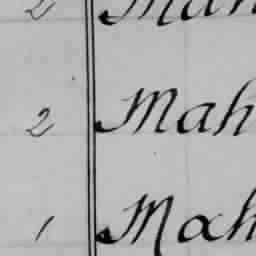 2 Mah
2 Mah
1 Mah